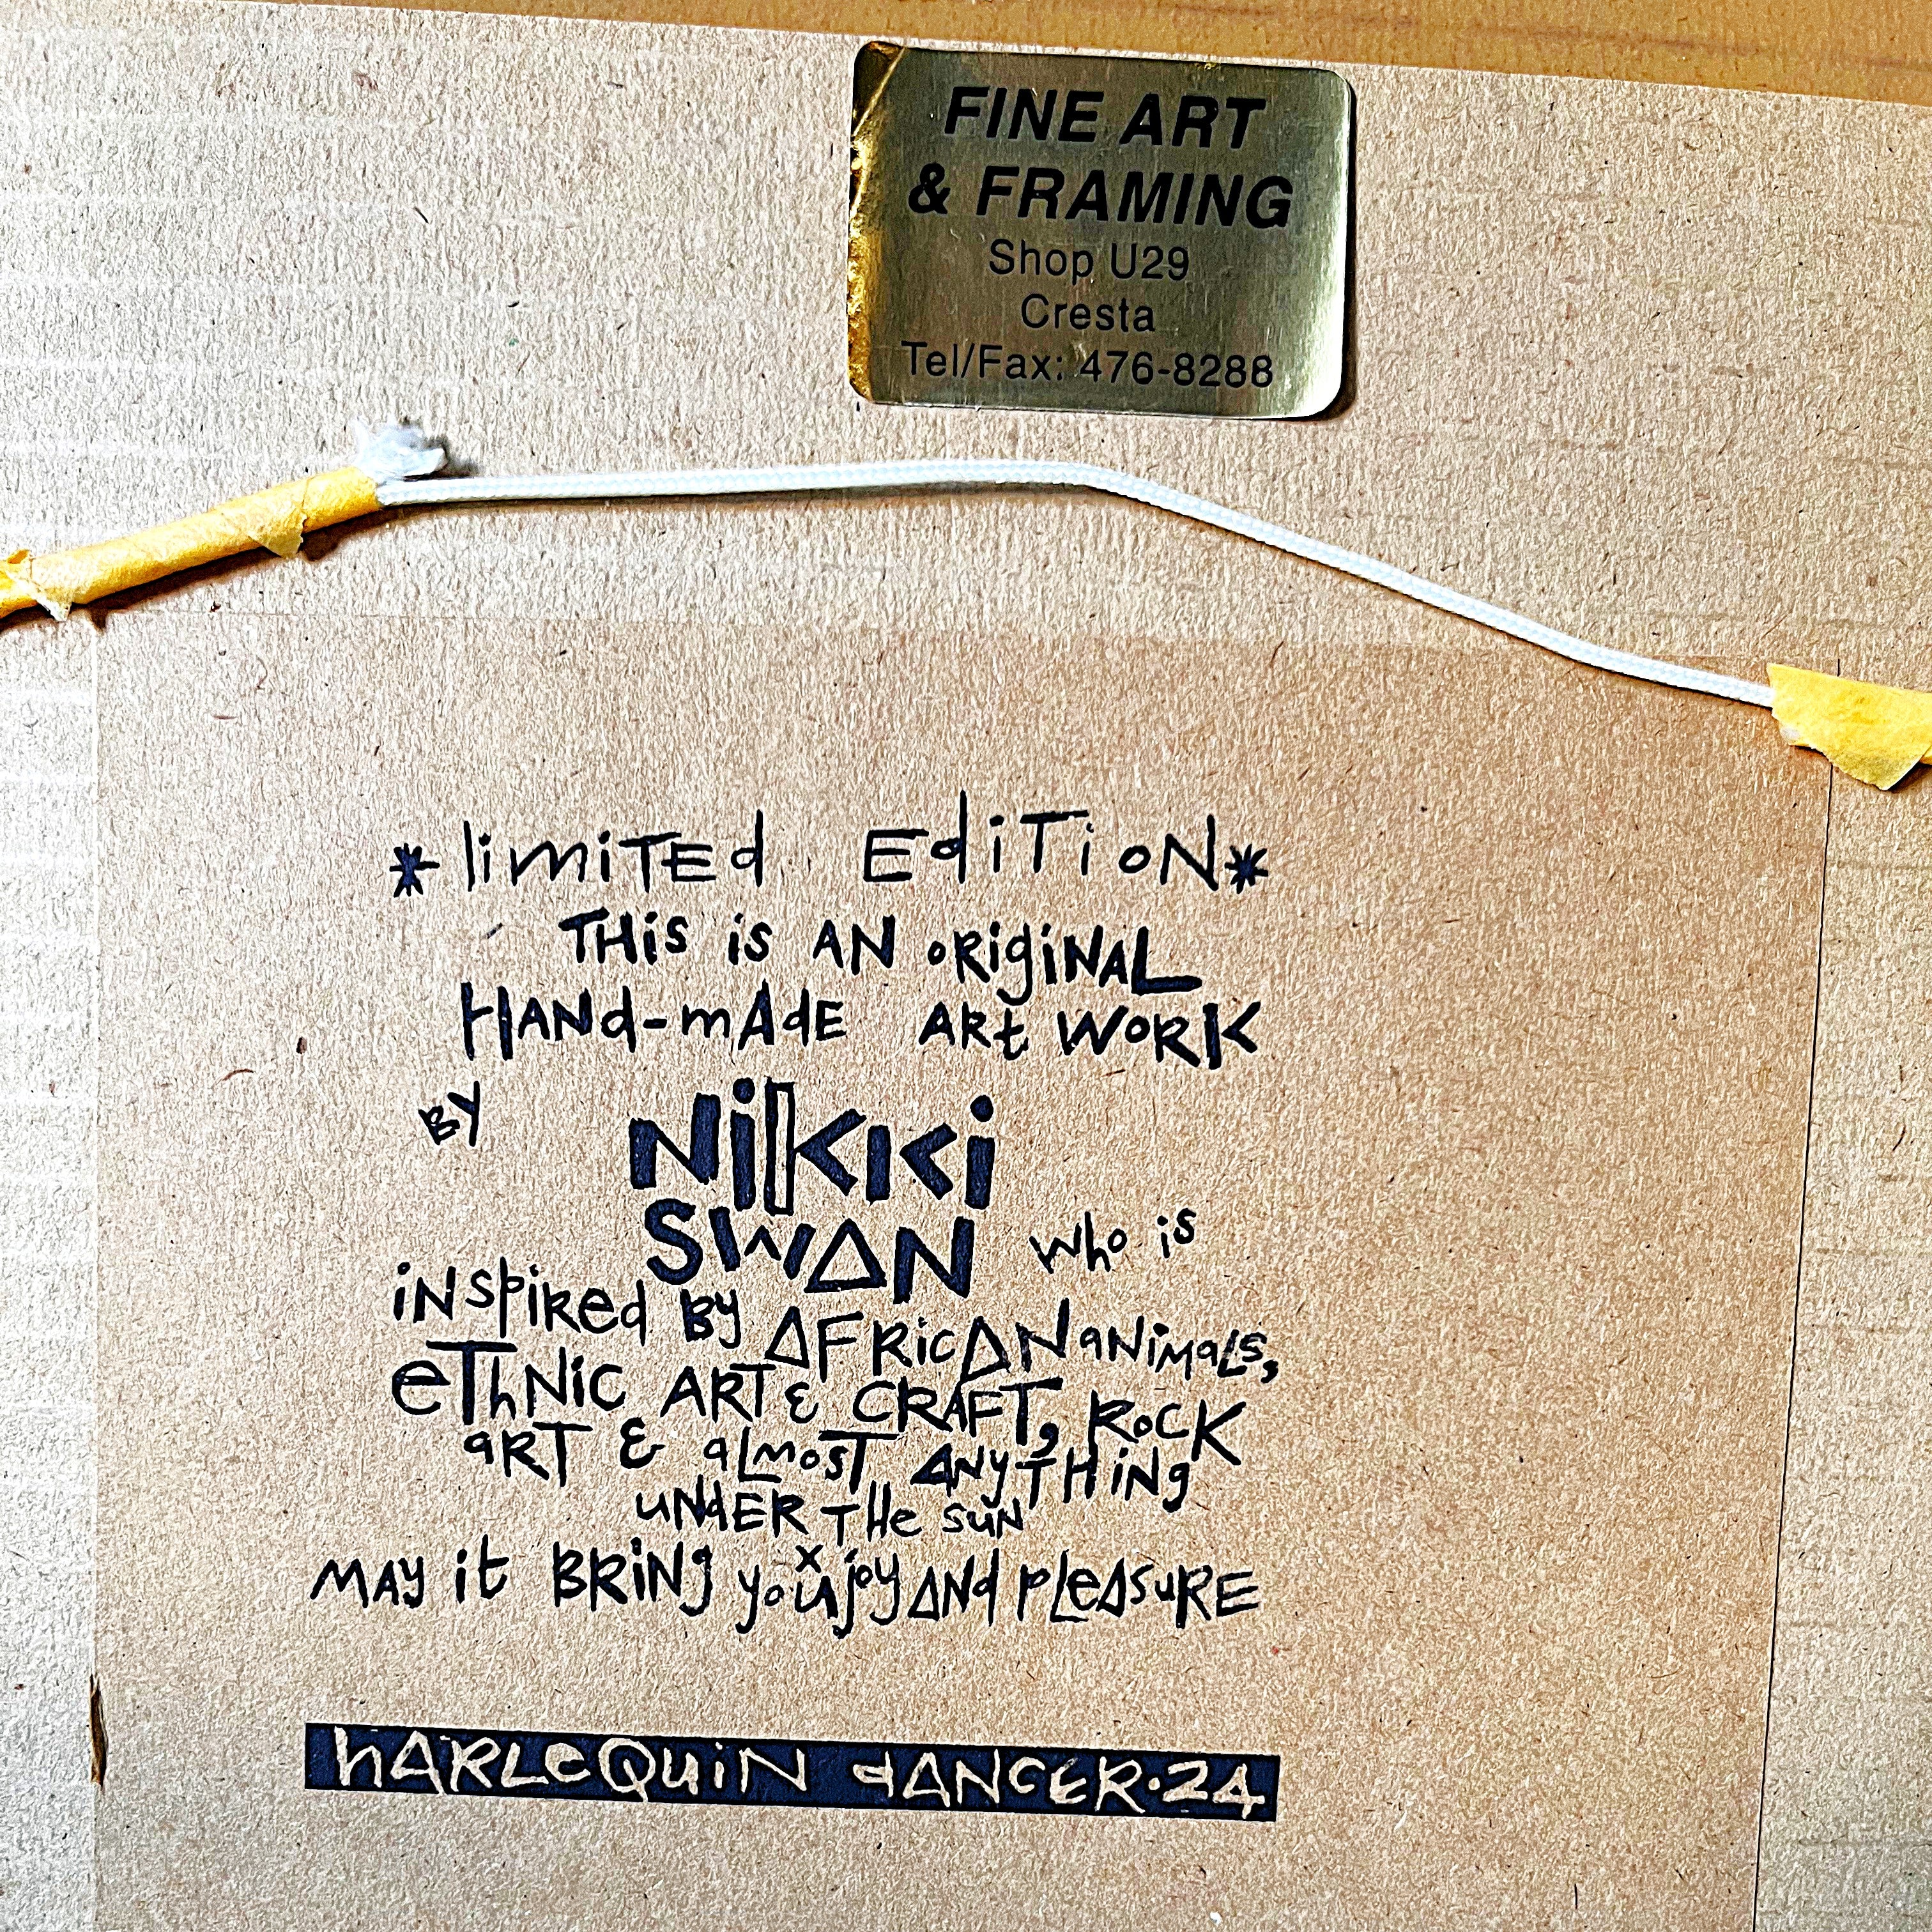 FINE ART
& FRAMING
Shop U29
Cresta
Tel/Fax: 476-8288
* limiTEd EdiTioN *
THis is AN oRigiNAL
HANd-mAdE ARt WoRK
BY NikKi
SWAN who is
iNspiRed By AFRicAN aNimaLs,
eThNic ART & CRAFT, RocK
aRT & aLmosT ANyTHiNg
uNdER THe suN
MAy it BRiNg you x joy ANd pLeAsuRE
hARLeQuiN dANcER·24